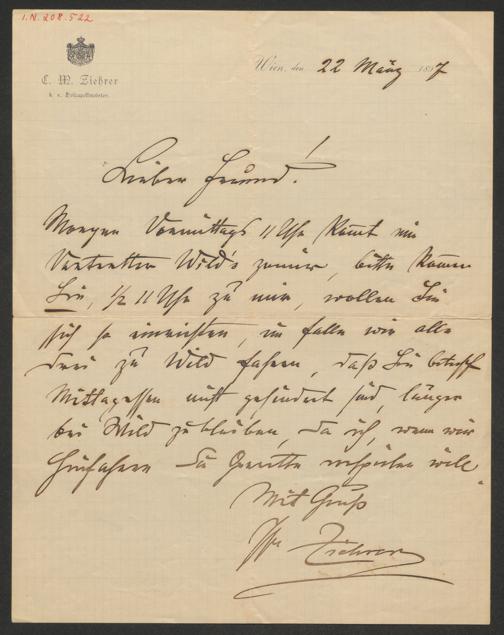 I.N. 208.522
C. M. Ziehrer
k. u. k. Hofballmusikdirector.
Wien, den 22 März 1897
Lieber Freund!
Morgen Vormittags 11 Uhr kommt ein
Vertretter Wild's zu mir, bitte kommen
Sie, ½ 11 Uhr zu mir, wollen Sie
sich so einrichten, im falle wir alle
drei zu Wild fahren, daß Sie betreff
Mittagessen nicht gehindert sind, länger
bei Wild zu bleiben, da ich, wenn wir
hinfahren die Operette vorspielen will.
Mit Gruß
Ihr Ziehrer